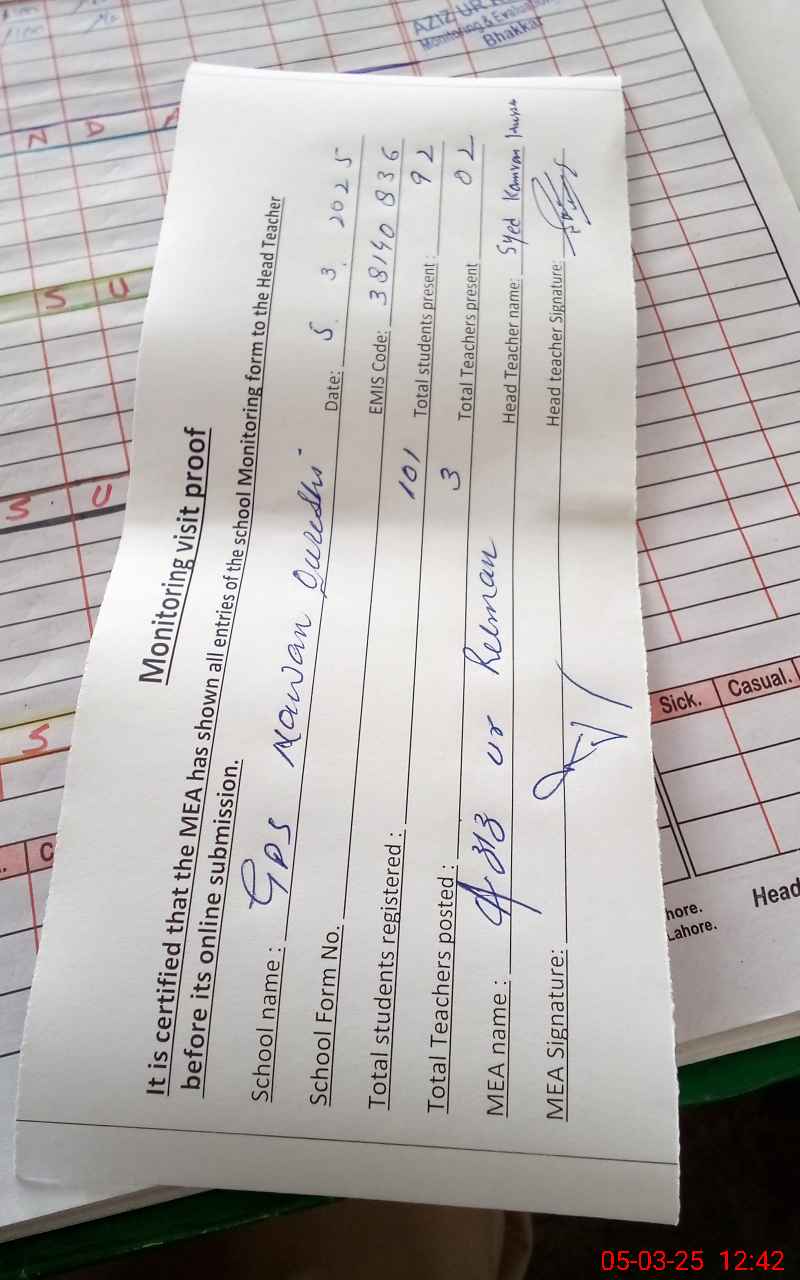 Monitoring visit proof
It is certified that the MEA has shown all entries of the school Monitoring form to the Head Teacher
before its online submission.
School name : GPS Nawan Qureshi Date: 5. 3. 2025
School Form No. EMIS Code: 38140 836
Total students registered : 101 Total students present : 92
Total Teachers posted : 3 Total Teachers present 02
MEA name : Aziz ur Rehman Head Teacher name: Syed Kamran
MEA Signature: Head teacher Signature:
AZIZ UR
Monitoring &
Bhakkar
N D
S U
S U
S
C
Sick. Casual.
hore.
Lahore.
Head
05-03-25 12:42